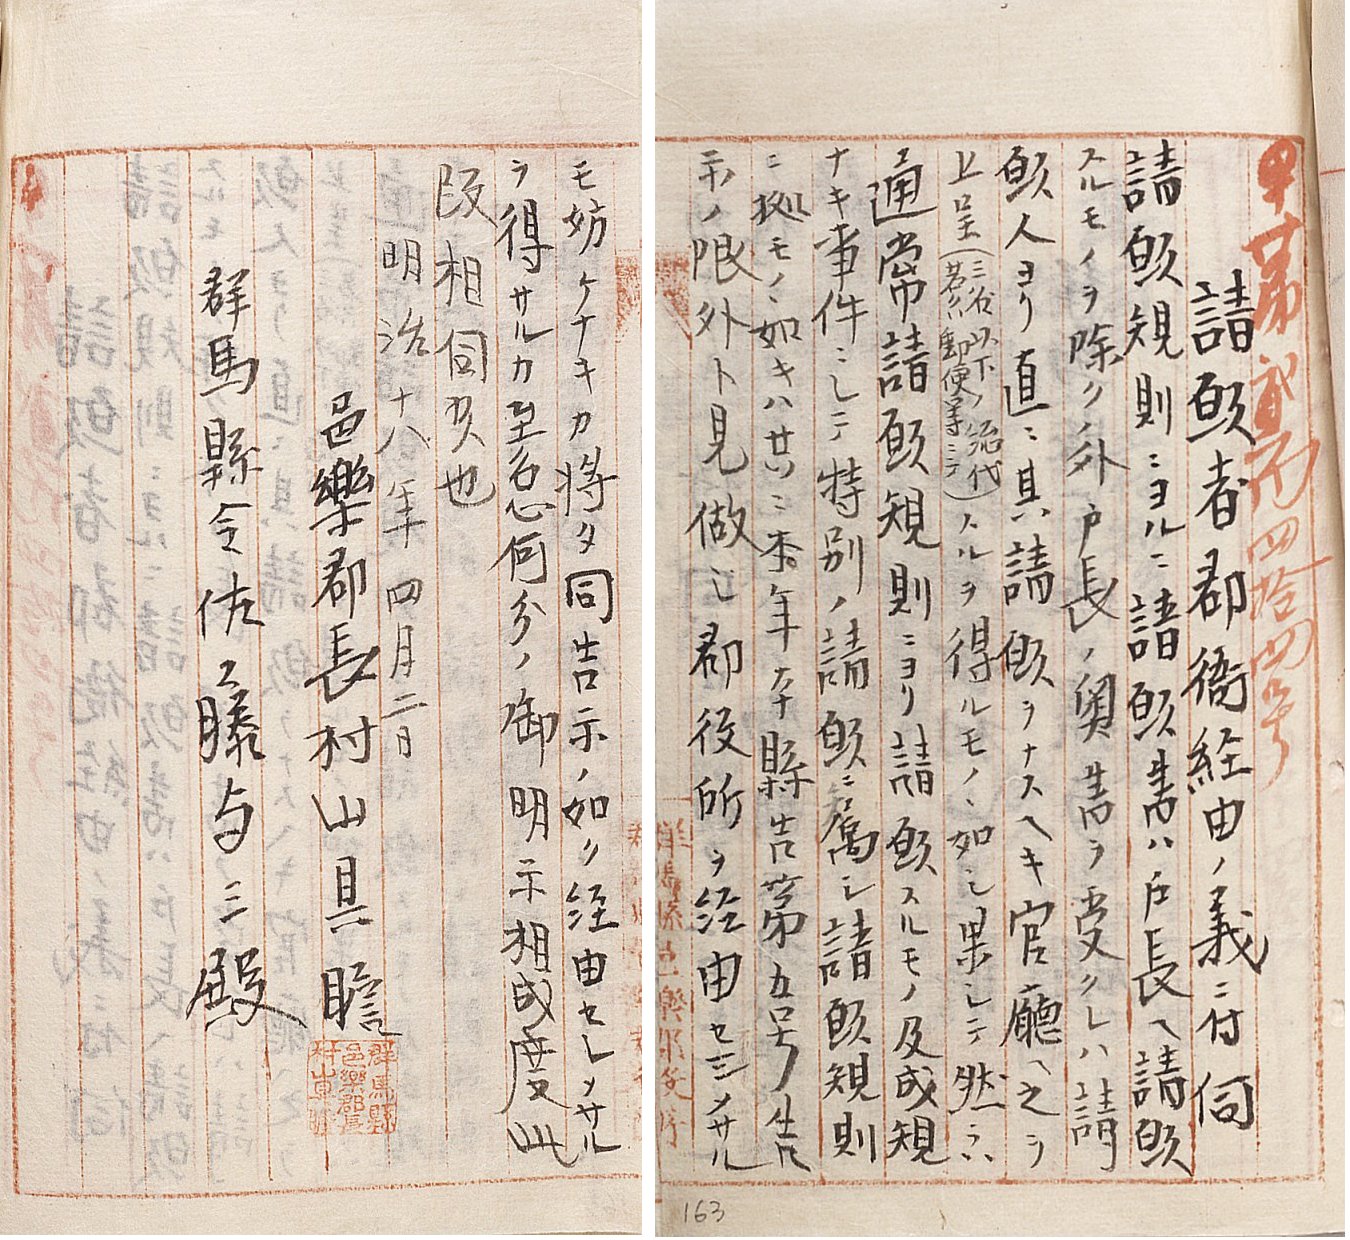 甲第弐百四拾四号
請願者郡衙経由ノ義ニ付伺
請願規則ニヨルニ請願書ハ戸長ヘ請願
スルモノヲ除クノ外戸長ノ奥書ヲ受クレハ請
願人ヨリ直ニ其請願ヲナスヘキ官廳ヘ之ヲ
上呈(三名以下ノ総代若クハ郵便等ニテ)スルヲ得ルモノヽ如シ果シテ然ラハ
通常請願規則ニヨリ請願スルモノ及成規
ナキ事件ニシテ特別ノ請願ニ属シ請願規則
ニ拠モノヽ如キハ廿ハ本年本縣告第五号告
示ノ限外ト見做シ郡役所ヲ経由セシメサル
モ妨ケナキカ将タ同告示ノ如ク経由セシメサル
ヲ得サルカ至急何分ノ御明示相成度此
段相伺候也
明治十八年四月二日
邑樂郡長村山具瞻
群馬縣邑樂郡長村山具瞻
群馬縣令佐藤与三殿
163